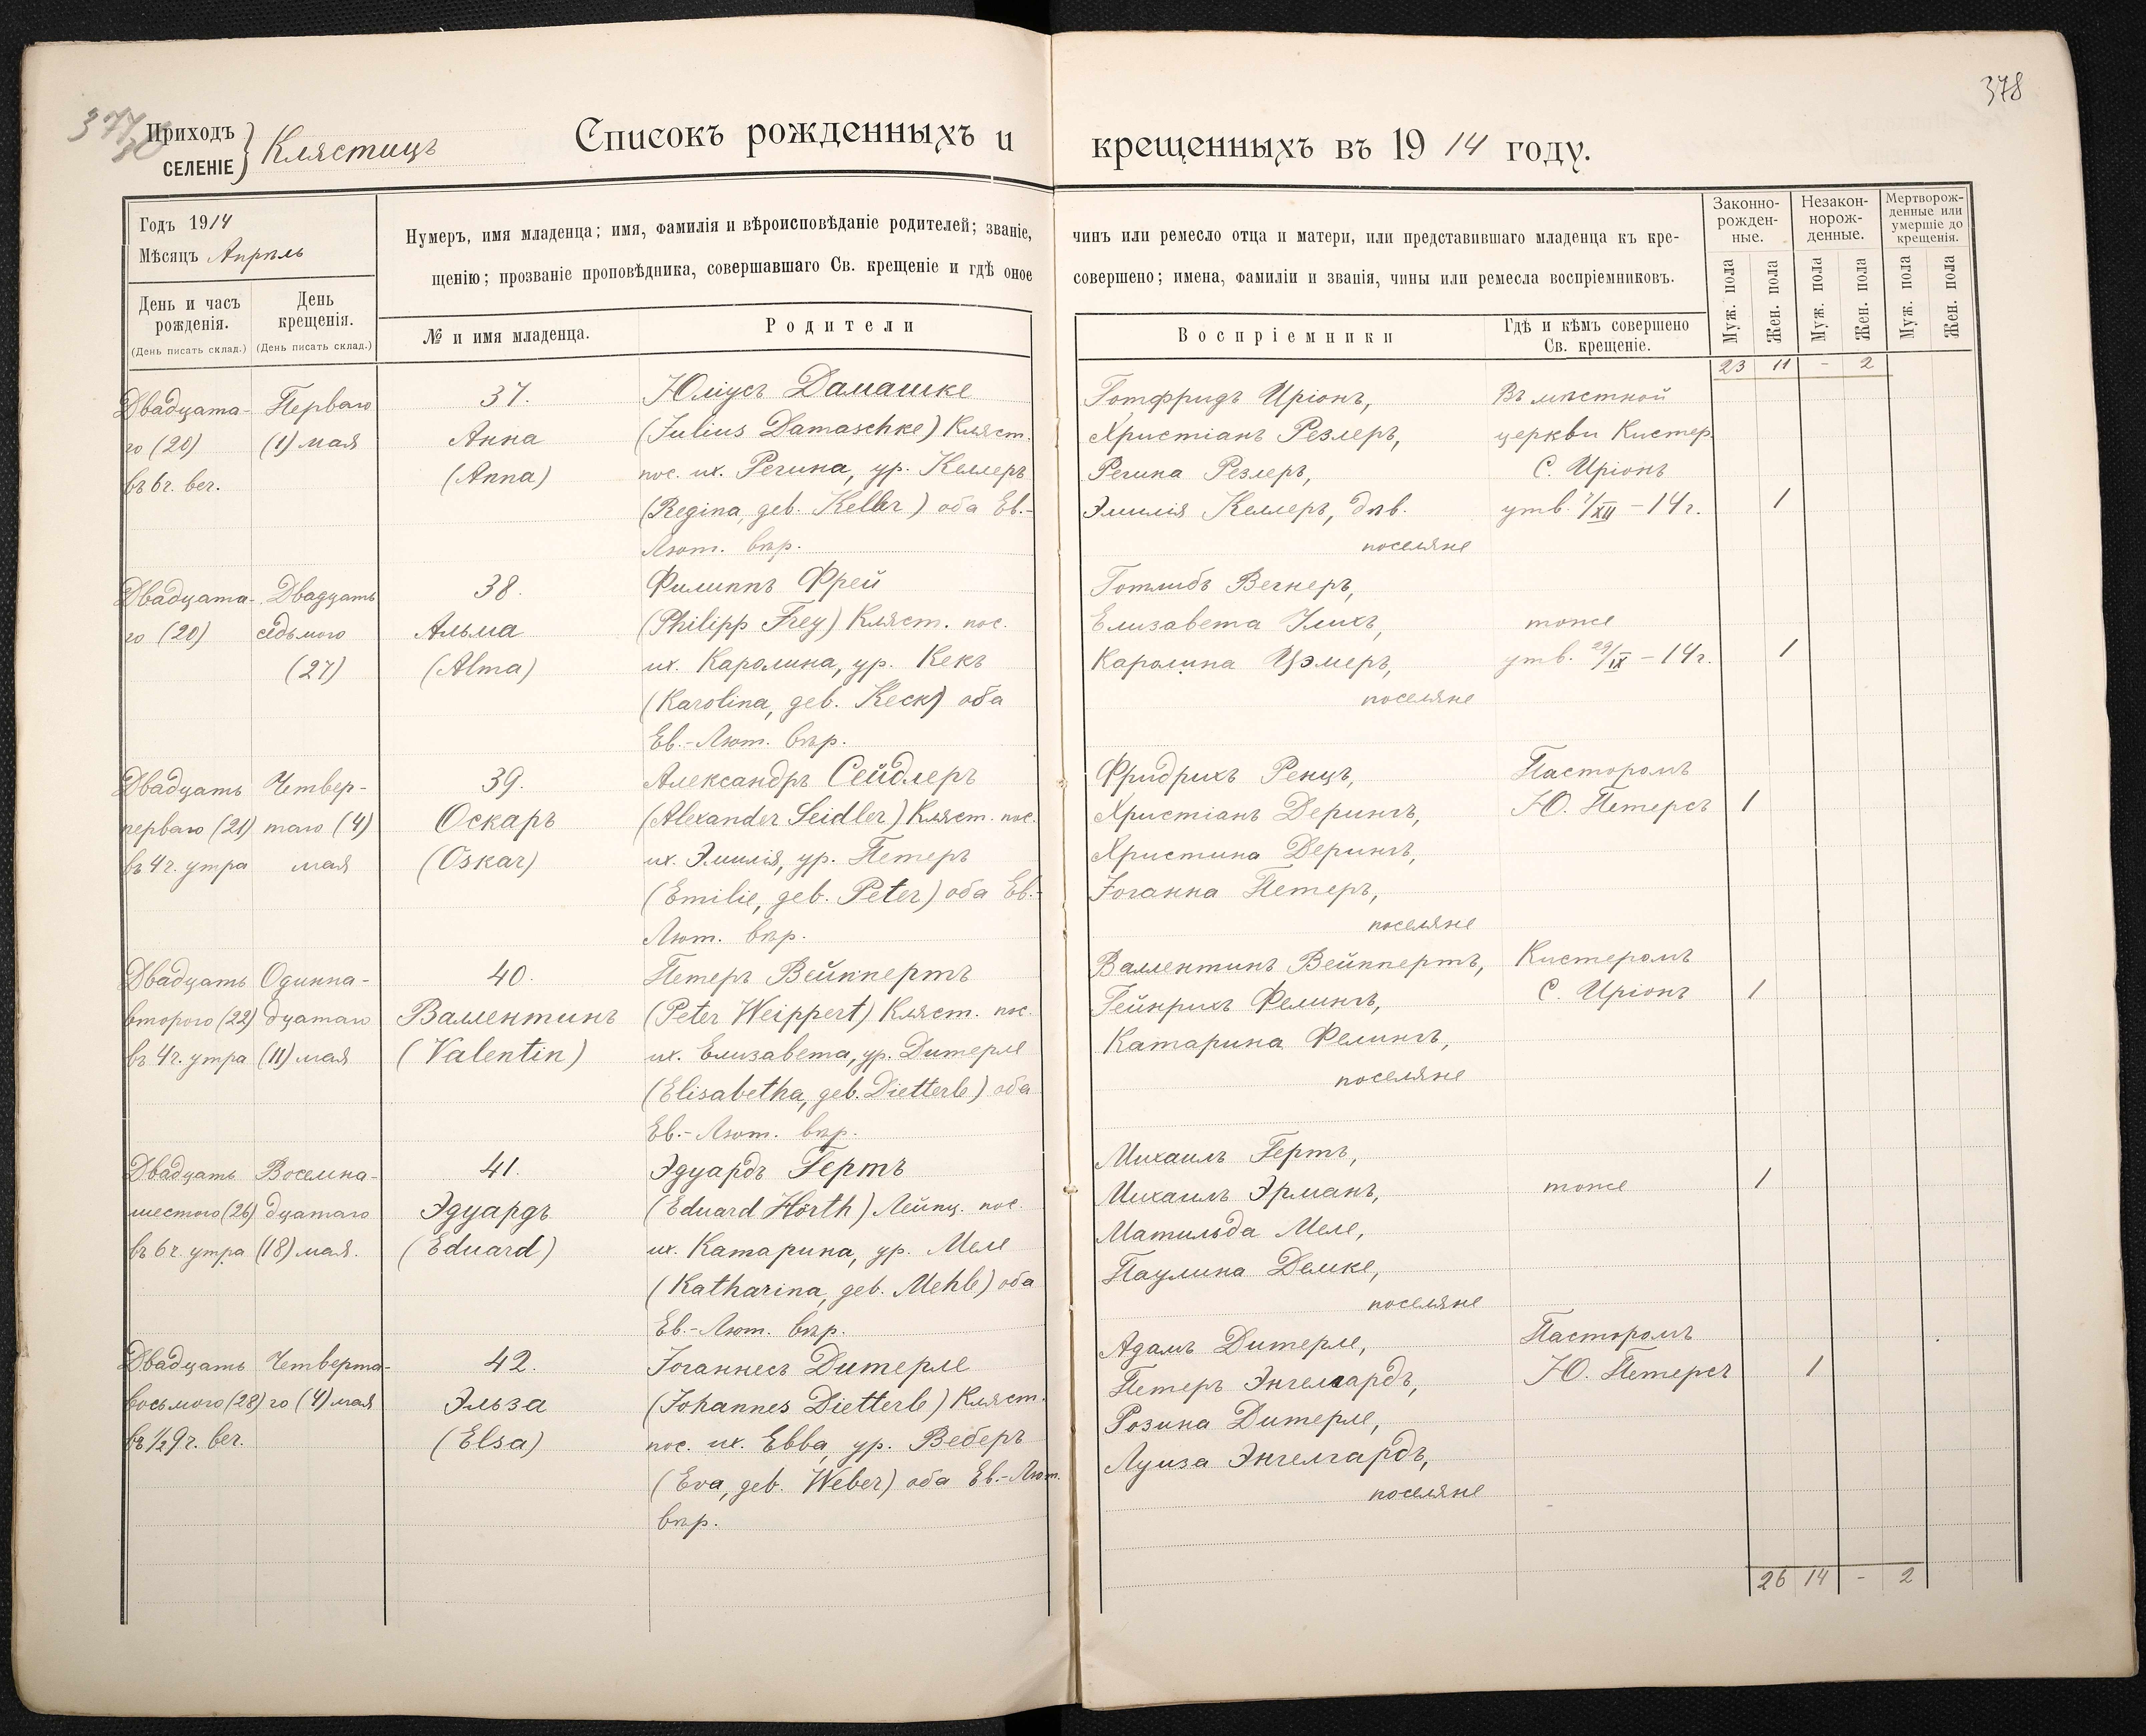 378
377
Приходъ
СЕЛЕНІЕ
Клястицъ
Списокъ рожденныхъ и крещенныхъ въ 1914 году.
Годъ 1914
Мѣсяцъ Апрѣль
День и часъ рожденія.
(День писать склад.)
День крещенія.
(День писать склад.)
Нумеръ, имя младенца; имя, фамилія и вѣроисповѣданіе родителей; званіе, чинъ или ремесло отца и матери, или представившаго младенца къ кре-
щенію; прозваніе проповѣдника, совершавшаго Св. крещеніе и гдѣ оное совершено; имена, фамиліи и званія, чины или ремесла воспріемниковъ.
№ и имя младенца.
Родители
Воспріемники
Гдѣ и кѣмъ совершено
Св. крещеніе.
Законно-
рожден-
ные.
Незакон-
норож-
денные.
Мертворож-
денные или
умершіе до
крещенія.
Муж. пола
Жен. пола
Муж. пола
Жен. пола
Муж. пола
Жен. пола
23 11 - 2
Двадцата-
го (20)
въ 6 ч. веч.
Перваго
(1) мая
37.
Анна
(Anna)
Юліусъ Дамашке
(Julius Damaschke) Кляст.
пос. их. Регина, ур. Келлеръ
(Regina, geb. Keller) оба Ев.-
Лют. вѣр.
Готфридъ Иріонъ,
Христіанъ Резлеръ,
Регина Резлеръ,
Эмилія Келлеръ, дѣв.
поселяне
Въ мѣстной
церкви Кистер.
С. Иріонъ
утв. 7/XII - 14 г.
1
Двадцата-
го (20)
Двадцать
седьмого
(27)
38.
Альма
(Alma)
Филиппъ Фрей
(Philipp Frey) Кляст. пос.
их. Каролина, ур. Кекъ
(Karolina, geb. Keck) оба
Ев.-Лют. вѣр.
Готлибъ Вегнеръ,
Елизавета Улихъ,
Каролина Цэлеръ,
поселяне
тоже
утв. 29/IX - 14 г.
1
Двадцать
перваго (21)
въ 4 ч. утра
Четвер-
таго (4)
мая
39.
Оскаръ
(Oskar)
Александръ Сейдлеръ
(Alexander Seidler) Кляст. пос.
их. Эмилія, ур. Петеръ
(Emilie, geb. Peter) оба Ев.-
Лют. вѣр.
Фридрихъ Ренцъ,
Христіанъ Дерингъ,
Христина Дерингъ,
Іоганна Петеръ,
поселяне
Пасторомъ
Ю. Петерсъ
1
Двадцать
второго (22)
въ 4 ч. утра
Одинна-
дцатаго
(11) мая
40.
Валлентинъ
(Valentin)
Петеръ Вейппертъ
(Peter Weippert) Кляст. пос.
их. Елизавета, ур. Дитерле
(Elisabetha, geb. Dietterle) оба
Ев.-Лют. вѣр.
Валлентинъ Вейппертъ,
Гейнрихъ Фелингъ,
Катарина Фелингъ,
поселяне
Кистеромъ
С. Иріонъ
1
Двадцать
шестого (26)
въ 6 ч. утра
Восемна-
дцатаго
(18) мая.
41.
Эдуардъ
(Eduard)
Эдуардъ Гертъ
(Eduard Hörth) Лейпц. пос.
их. Катарина, ур. Меле
(Katharina, geb. Mehle) оба
Ев.-Лют. вѣр.
Михаилъ Гертъ,
Михаилъ Эрманъ,
Матильда Меле,
Паулина Демке,
поселяне
тоже
1
Двадцать
восьмого (28)
въ ½9 ч. веч.
Четверта-
го (4) мая
42.
Эльза
(Elsa)
Іоганнесъ Дитерле
(Johannes Dietterle) Кляст.
пос. их. Евва, ур. Веберъ
(Eva, geb. Weber) оба Ев.-Лют.
вѣр.
Адамъ Дитерле,
Петеръ Энгелгардъ,
Розина Дитерле,
Луиза Энгелгардъ,
поселяне
Пасторомъ
Ю. Петерсъ
1
26 14 - 2